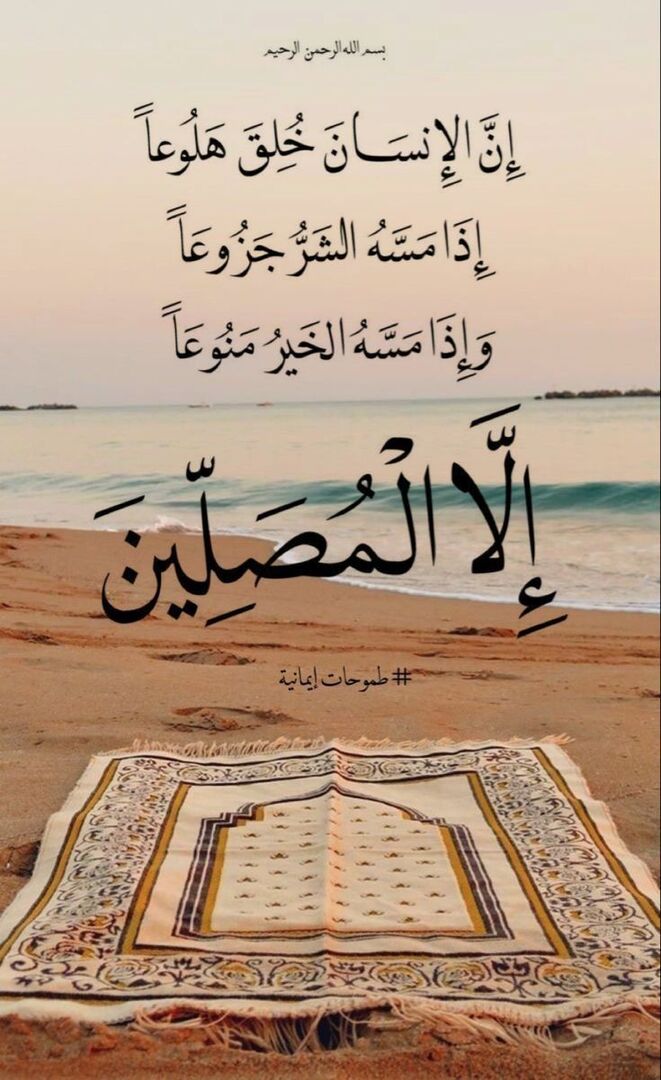 بسم الله الرحمن الرحيم
إِنَّ الإِنسَـانَ خُلِقَ هَلُوعاً
إِذَا مَسَّهُ الشَرُّ جَزُوعَاً
وَإِذَا مَسَّهُ الخَيرُ مَنُوعَاً
إِلَّا الْمُصَلِّينَ
#طموحات إيمانية